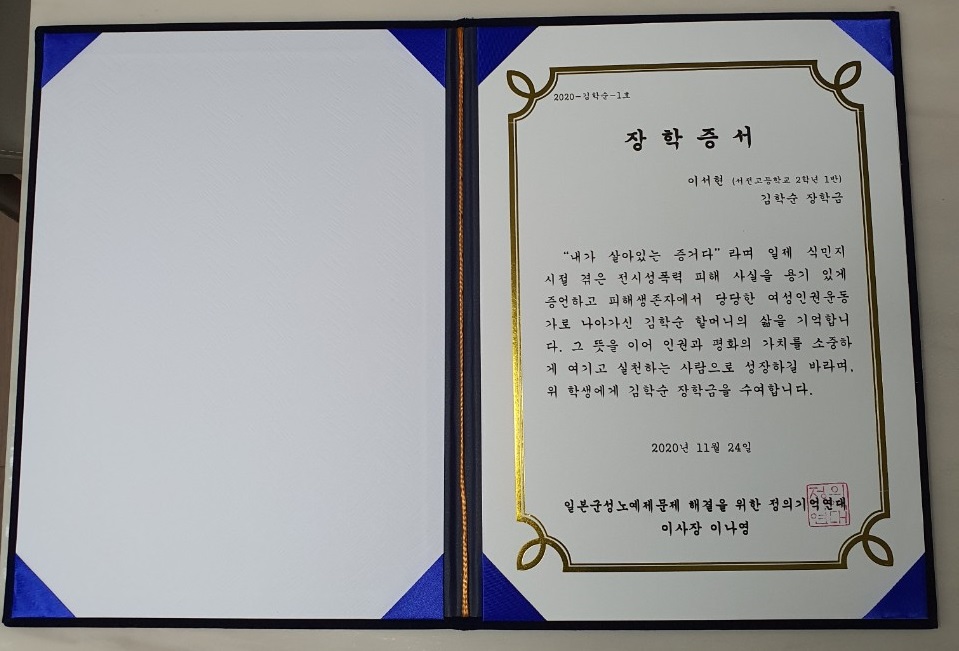 2020-김학순-1호
장 학 증 서
이서현 (서전고등학교 2학년 1반)
김학순 장학금
“내가 살아있는 증거다” 라며 일제 식민지
시절 겪은 전시성폭력 피해 사실을 용기 있게
증언하고 피해생존자에서 당당한 여성인권운동
가로 나아가신 김학순 할머니의 삶을 기억합니
다. 그 뜻을 이어 인권과 평화의 가치를 소중하
게 여기고 실천하는 사람으로 성장하길 바라며,
위 학생에게 김학순 장학금을 수여합니다.
2020년 11월 24일
일본군성노예제문제 해결을 위한 정의기억연대
이사장 이나영
정의
연대